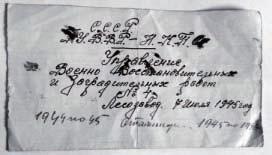 СССР
Управление
Военно Восстановительных
и Заградительных работ
№ 43
Лесозавод. 7 Июля 1945 год
1944 по 45
1945